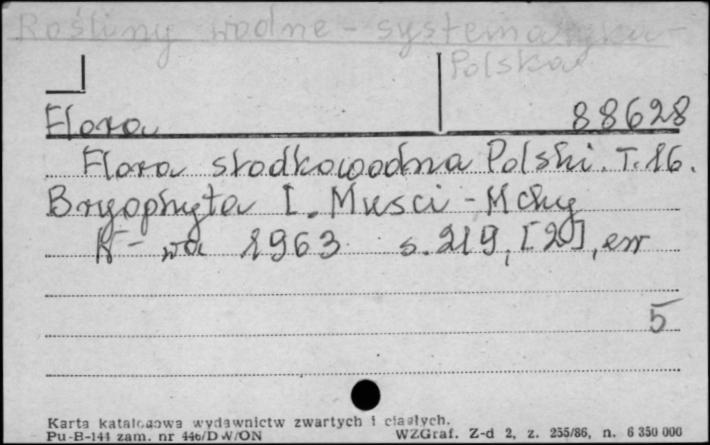 Rośliny wodne - systematyka -
Polska
Flora 88628
Flora słodkowodna Polski. T. 16.
Bryophyta I. Musci - Mchy
W-wa 1963 s. 219, [2], err
5
Karta katalogowa wydawnictw zwartych i ciągłych.
Pu-B-141 zam. nr 446/DW/ON WZGraf. Z-d 2, z. 255/86, n. 6 350 000